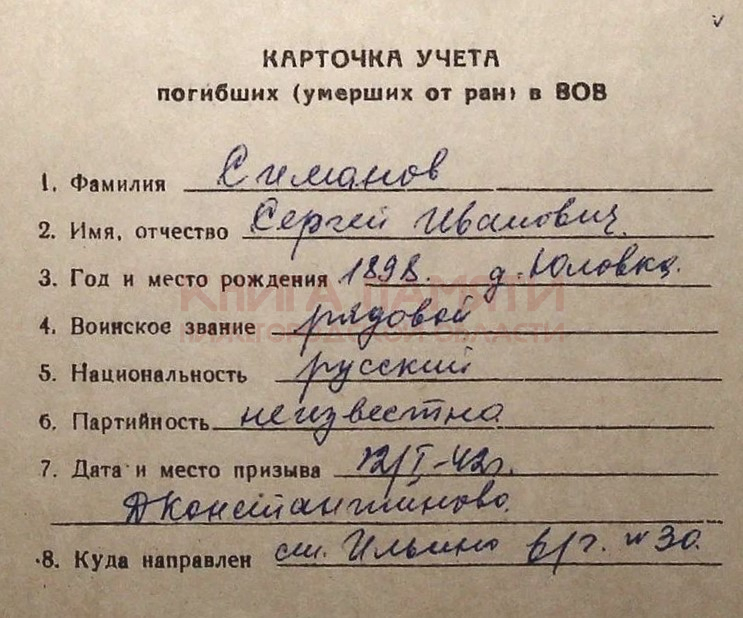 КАРТОЧКА УЧЕТА
погибших (умерших от ран) в ВОВ
1. Фамилия Симанов
2. Имя, отчество Сергей Иванович.
3. Год и место рождения 1898. д. Юловка.
КНИГА ПАМЯТИ
4. Воинское звание рядовой
НИЖЕГОРОДСКОЙ ОБЛАСТИ
5. Национальность русский
6. Партийность неизвестна
7. Дата и место призыва 12/I-42г.
Д Константиново.
8. Куда направлен ст. Ильино в/ч. № 30.